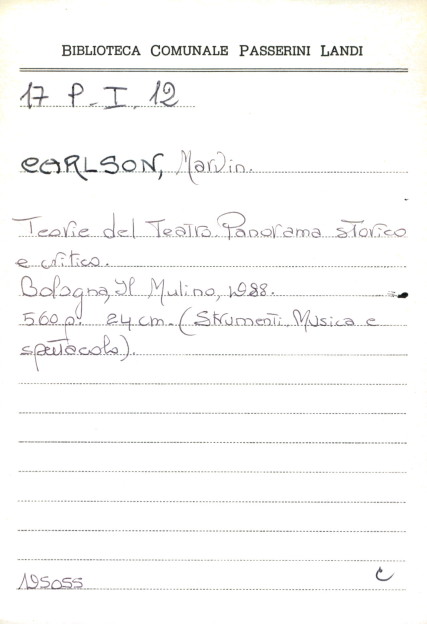 BIBLIOTECA COMUNALE PASSERINI LANDI
17 P. I. 12
CARLSON, Marvin.
Teorie del Teatro. Panorama storico
e critico.
Bologna, Il Mulino, 1988.
560 p. 24 cm. (Strumenti. Musica e
spettacolo).
195055
C